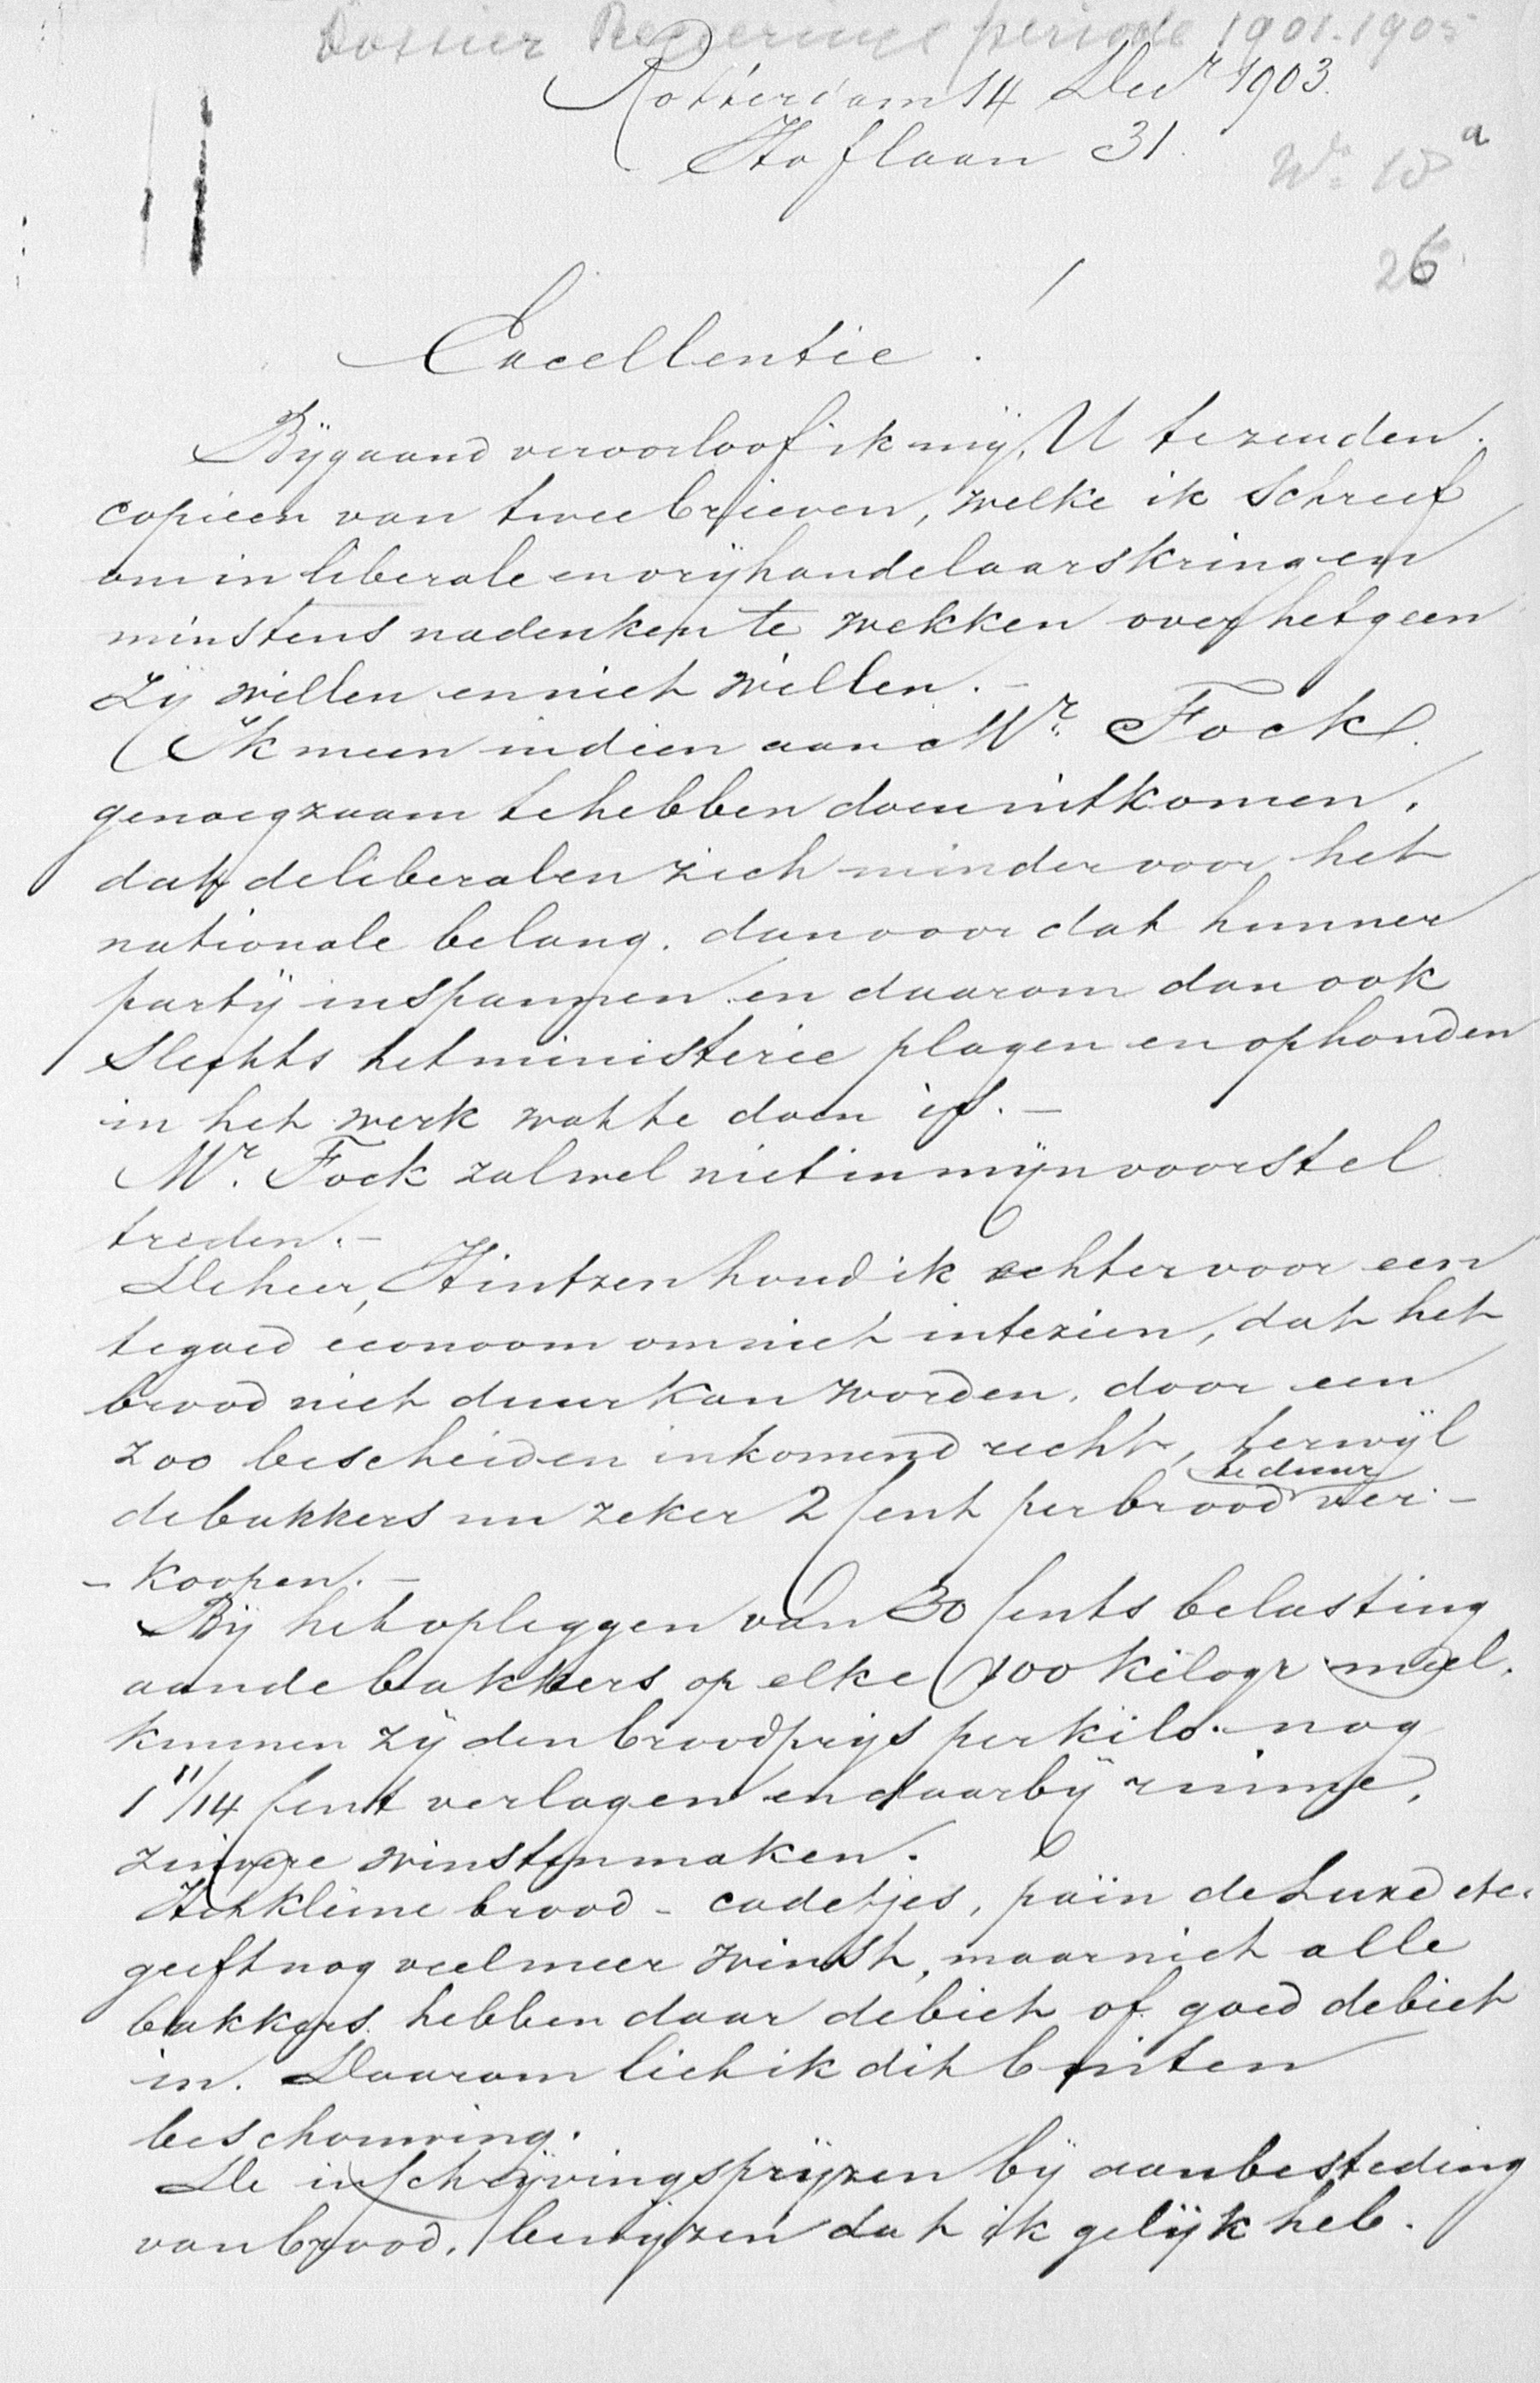 Dossier Regeerings periode 1901-1905
Rotterdam 14 Decr 1903.
Hoflaan 31.
No 18 a
26
Excellentie!
Bijgaand veroorloof ik mij, U te zenden
copieen van twee brieven, welke ik schreef
om in liberale en vrijhandelaarskringen
minstens nadenken te wekken over hetgeen
zij willen en niet willen. —
Ik meen indien aan Mr. Fock
genoegzaam te hebben doen uitkomen,
dat de liberalen zich minder voor het
nationale belang, dan voor dat hunner
partij inspannen en daarom dan ook
slechts het ministerie plagen en ophouden
in het werk wat te doen is. —
Mr. Fock zal wel niet in mijn voorstel
treden. —
De heer, Hintzen houd ik echter voor een
te goed econoom om niet in te zien, dat het
brood niet duur kan worden, door een
zoo bescheiden inkomend recht, terwijl
te duur
de bakkers nu zeker 2 Cent per brood ver-
- koopen. —
Bij het opleggen van 30 Cents belasting
aan de bakkers op elke 100 kilogr meel,
kunnen zij den broodprijs per kilo nog
1 11/14 Cent verlagen en daarbij ruime,
zuivere winsten maken.
Het kleine brood - cadetjes, pain de Luxe etc.
geeft nog veel meer winst, maar niet alle
bakkers hebben daar debiet of goed debiet
in. Daarom liet ik dit buiten
beschouwing.
De inschrijvingsprijzen bij aanbesteding
van brood, bewijzen dat ik gelijk heb.